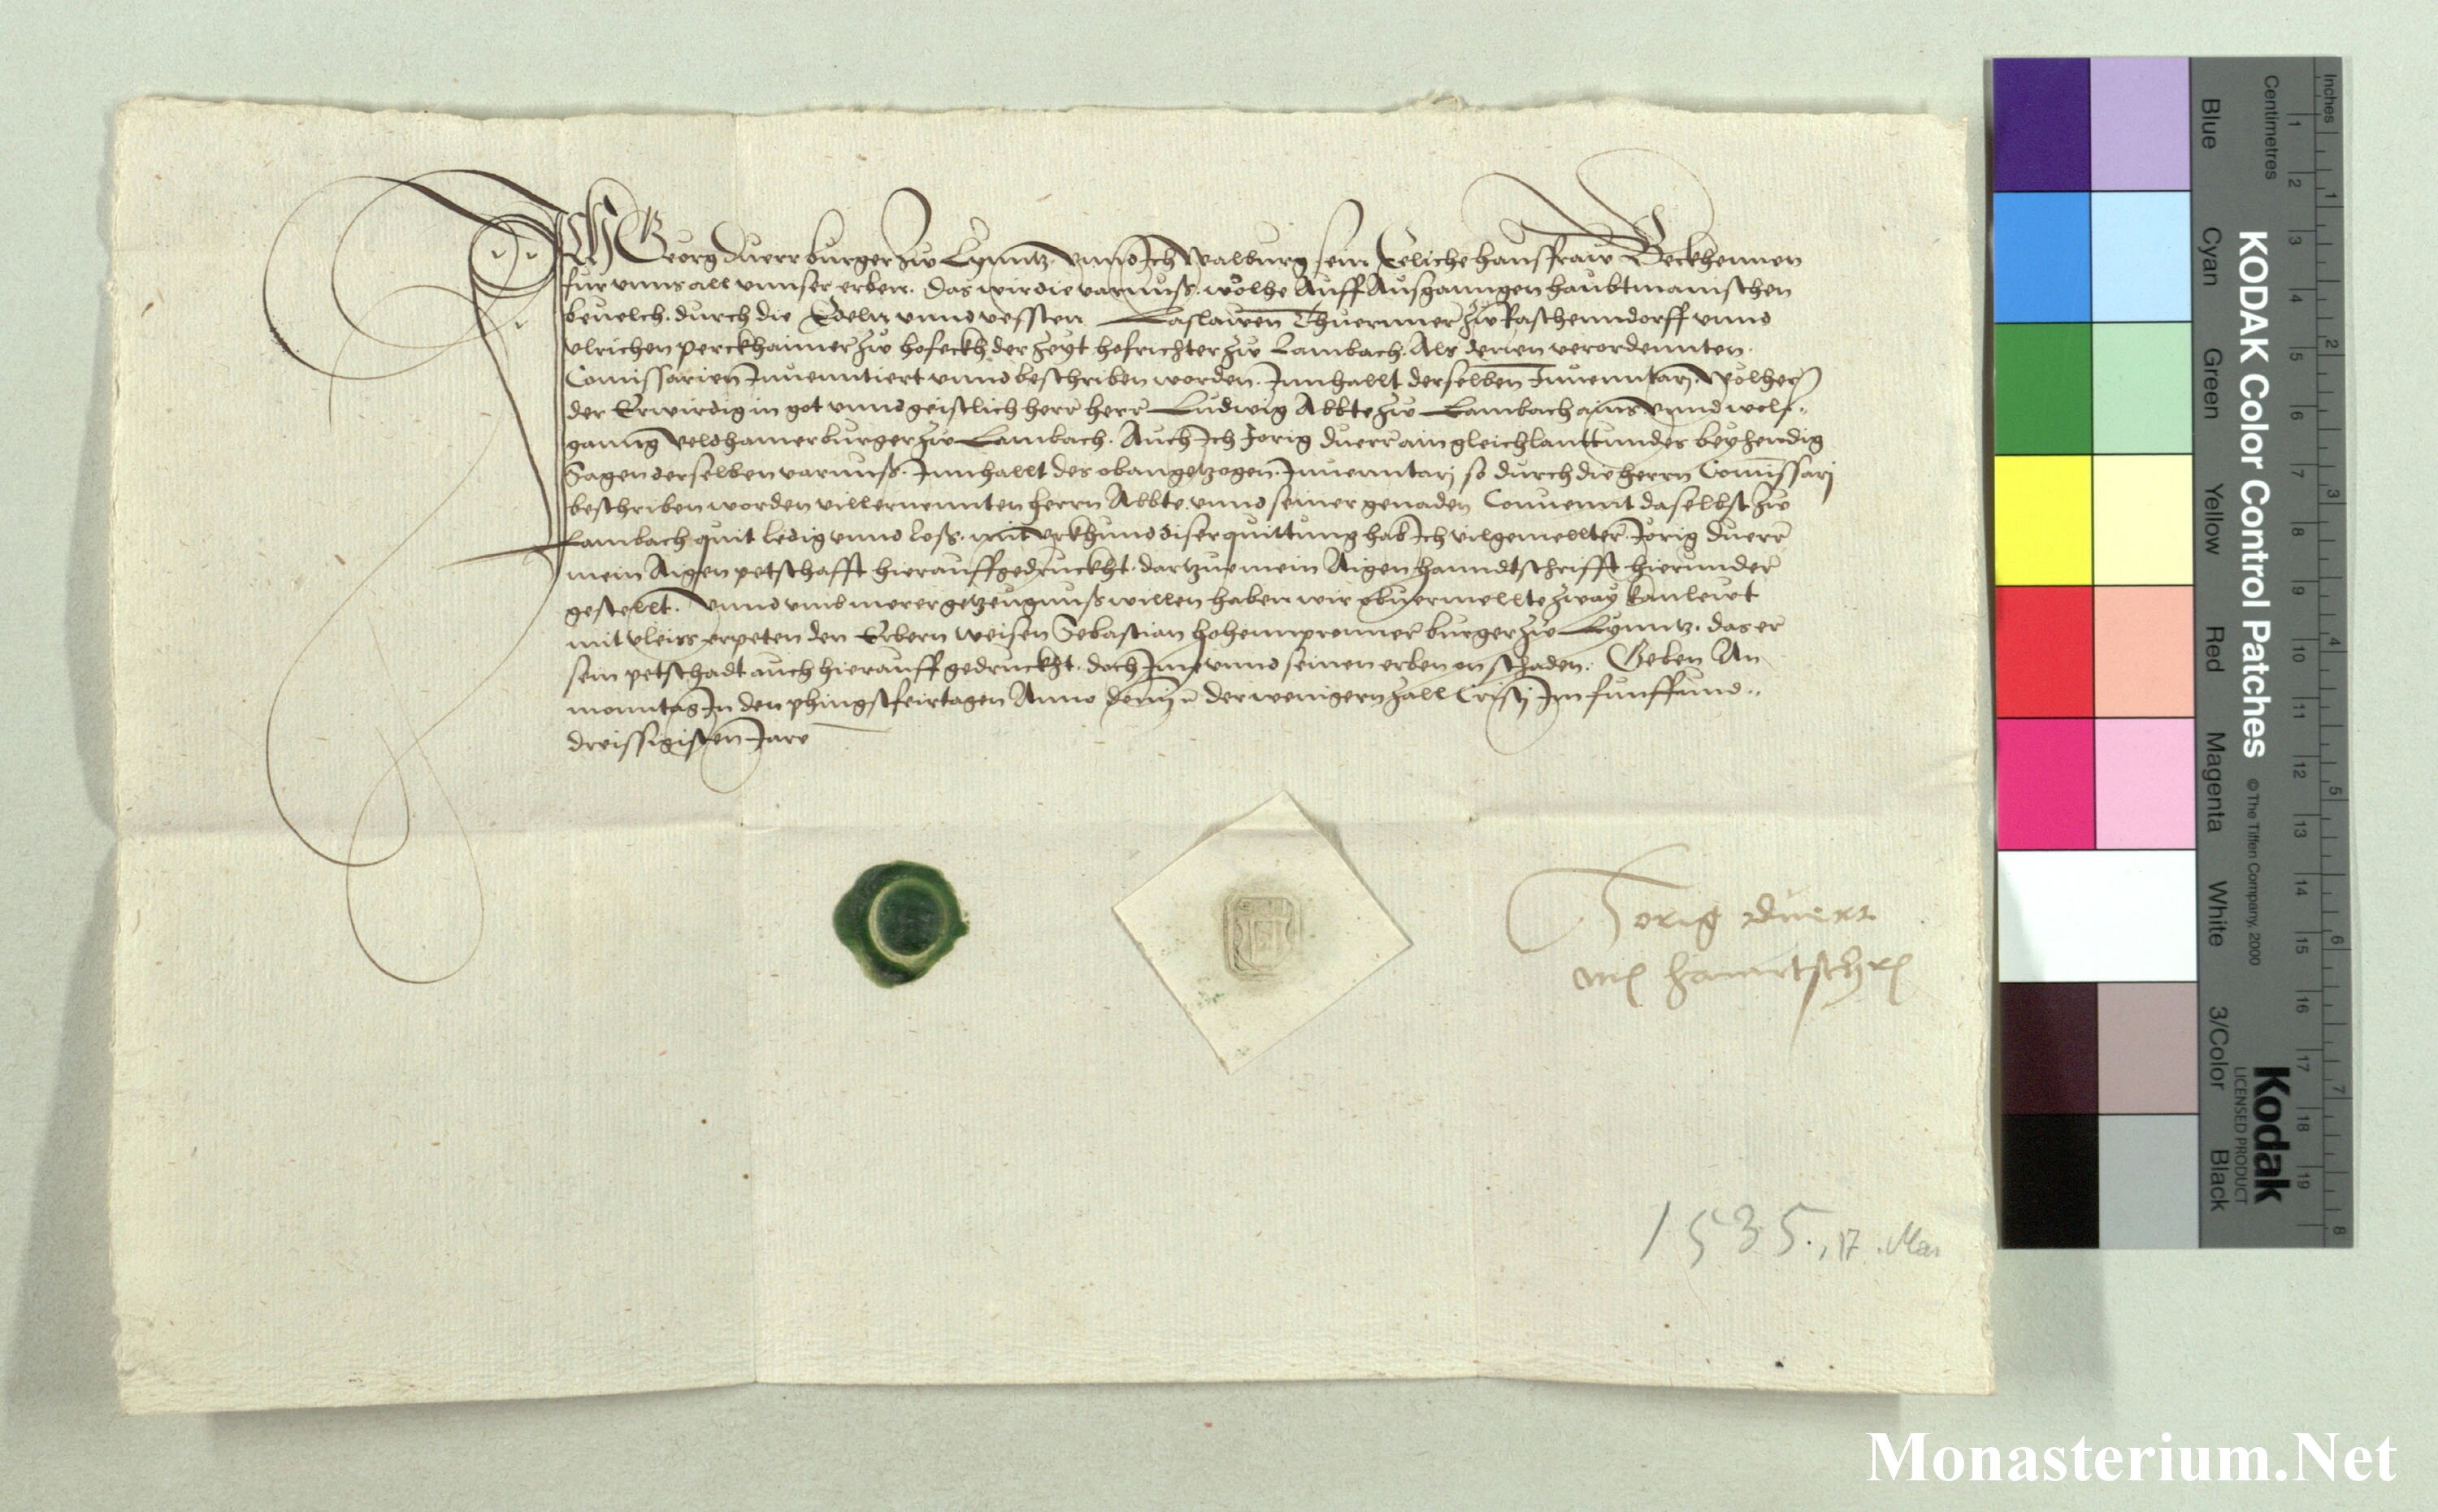 Ich Georg Duerr burger zw Lynntz. vnnd Ich Walburg sein Eeliche hausfraw Beckhennen
fur vnns all vnnser erben. das wir die varnuss. wölhe Auff Ausganngen haubtmanischen
beuelch. durch die Edeln vnnd vessten Laslawen Thuernner zw Raschenndorff vnnd
Vlrichen perckhaimer zw hofeckh der Zeyt hofrichter zw Lambach. Als verordennten
Comissarien Inuenntiert vnnd beschriben worden. Innhallt derselben Inuenntarj. Wölher
der Erwirdig in got vnnd geistlich herr herr Ludwig Abbte zw Lambach ains vnnd wolf-
ganng Veldhamer burger zw Lambach. Auch Ich Jorig duerr ain gleichlauttundes beyhendig
Sagen derselben varnuss. Innhallt des obangetzogen Inuenntarj so durch die herrn Comissarj
beschriben worden villernennten herrn Abbte. vnnd seiner genaden Conuennt daselbst zw
Lambach quit ledig vnnd loss. mit vrkhund diser quittung hab Ich vilgemellter Jorig duerr
mein Aigen petschafft hierauff gedruckht. dartzue mein Aigen hanndtschrifft hierunder
gestellt. Vnnd vmb merer getzeugnuss willen haben wir obuermellte zway kanleut
mit vleiss erpeten den Erbern weisen Sebastian hohennprenner burger zw Lynntz. das er
sein petschadt auch hierauff gedruckht. doch Ime vnnd seinen erben on schaden. Geben An
monntag In den phingstfeirtagen Anno domj der wenigern zall Cristj Im funffund-
dreissigisten Jare
Jorig duerr
mein hanntschrift
1535., 17. Mai
KODAK Color Control Patches
© The Tiffen Company, 2000
Kodak
LICENSED PRODUCT
Inches 1 2 3 4 5 6 7 8
Centimetres 1 2 3 4 5 6 7 8 9 10 11 12 13 14 15 16 17 18 19
Blue Cyan Green Yellow Red Magenta White 3/Color Black
Monasterium.Net